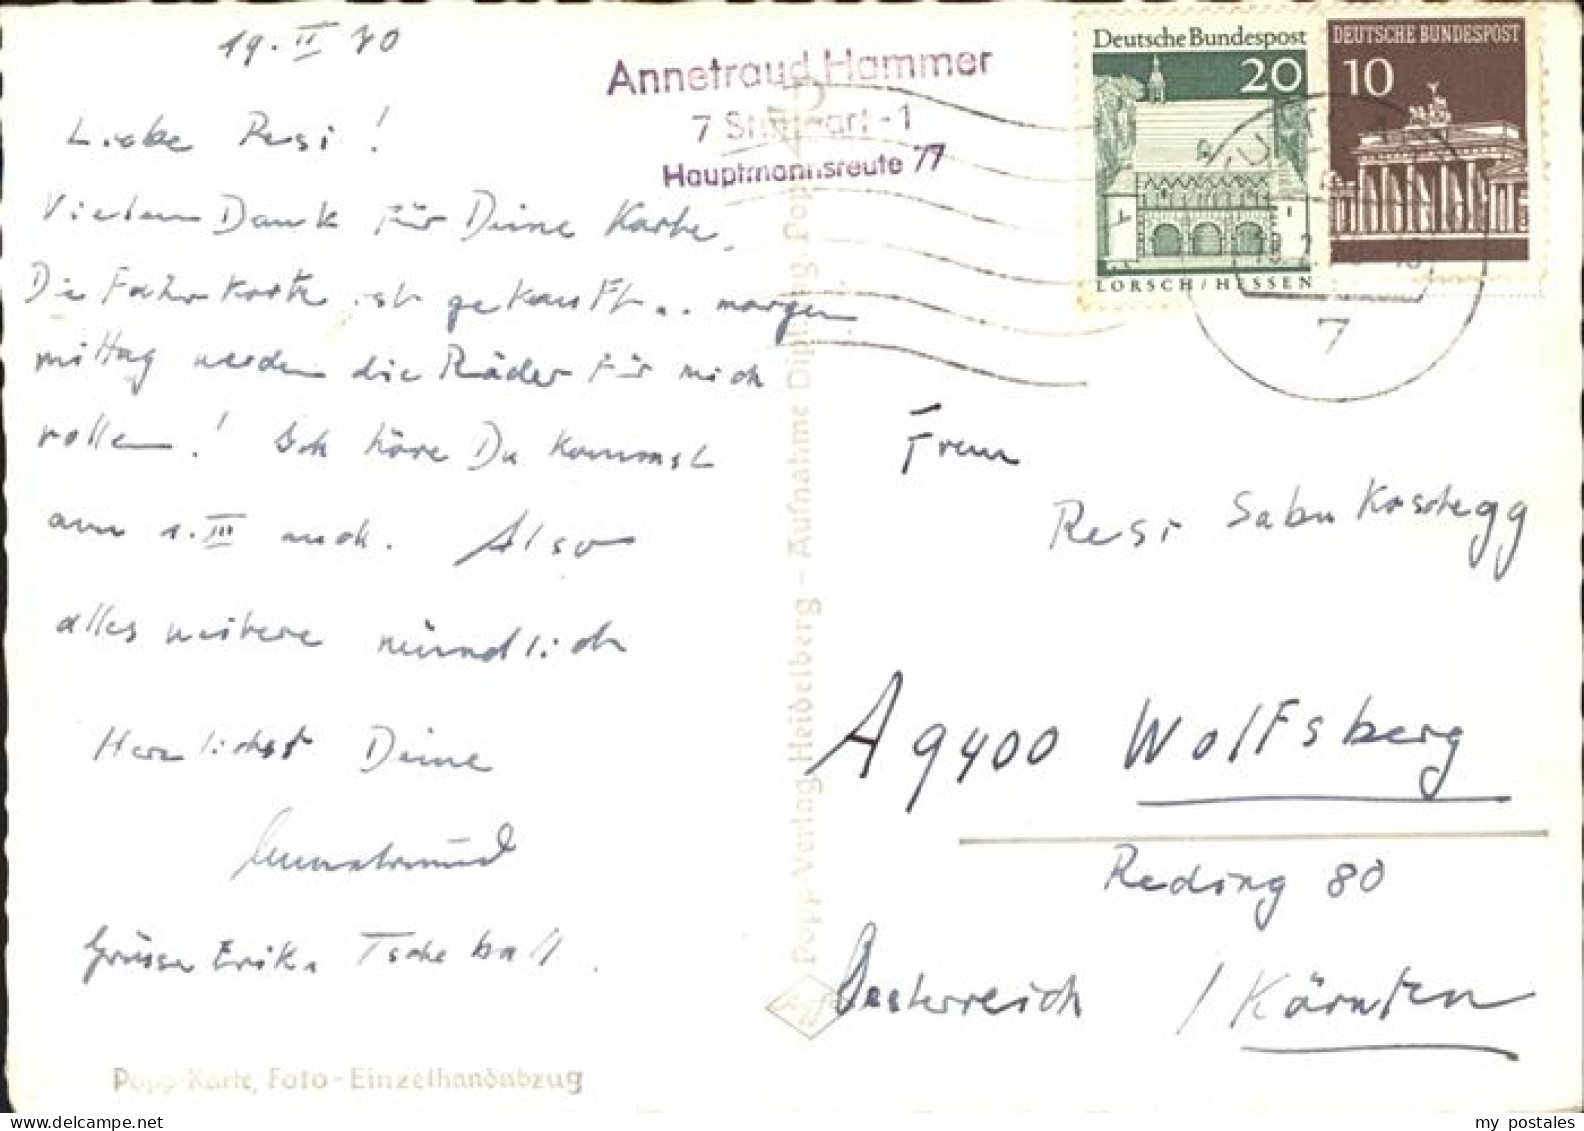 19. II 70
Liebe Resi!
Vielen Dank für Deine Karte.
Die Fahrkarte ist gekauft.. morgen
mittag werden die Räder für mich
rollen! Ich höre Du kommst
am 1. III auch. Also
alles weitere mündlich
Herzlichst Deine
Annetraud
Grüsse Erika Tscheball.
Popp-Karte, Foto-Einzelhandabzug
Popp-Verlag Heidelberg - Aufnahme Dipl. Ing. Popp
Agfa
Annetraud Hammer
7 Stuttgart-1
Hauptmannsreute 77
Deutsche Bundespost
20
LORSCH/HESSEN
DEUTSCHE BUNDESPOST
10
7
Frau
Resi
A 9400 Wolfsberg
Reding 80
Oesterreich / Kärnten
my postales